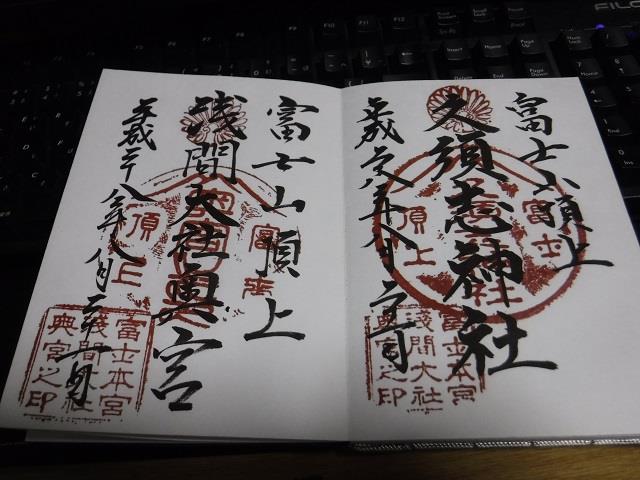 富士山頂上
久須志神社
平成廿八年八月二十一日
富士
頂上
富士本宮
淺間大社
奥宮之印
富士山頂上
浅間大社奥宮
平成二十八年八月二十一日
頂上
富士本宮
淺間大社
奥宮之印
FILCO